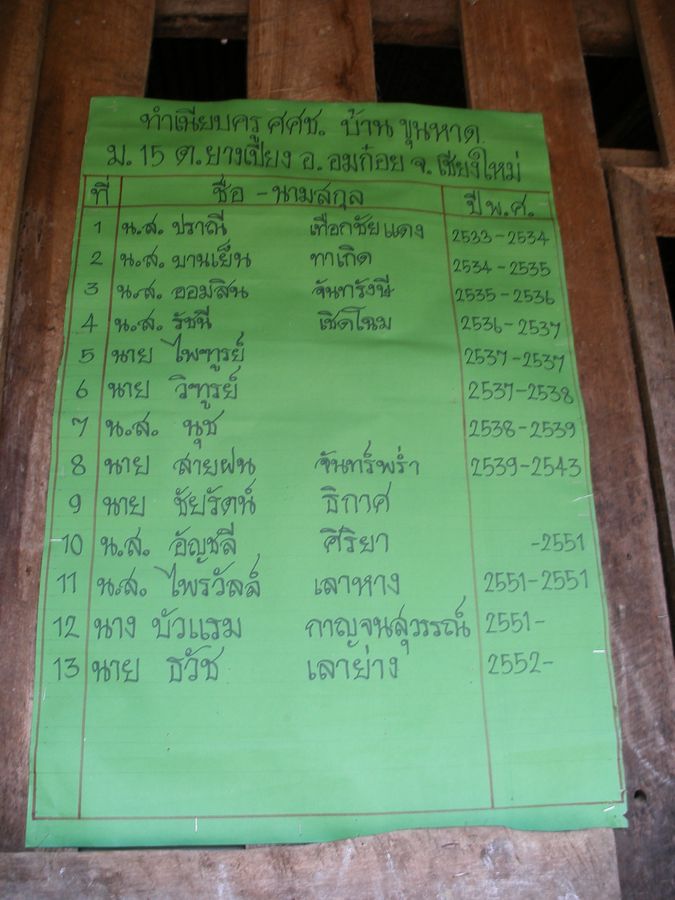 ทำเนียบครู ศศช. บ้าน ขุนหาด
ม. 15 ต. ยางเปียง อ. อมก๋อย จ. เชียงใหม่
ที่ ชื่อ - นามสกุล ปี พ.ศ.
1 น.ส. ปราณี เทือกชัยแดง 2533-2534
2 น.ส. บานเย็น ทาเกิด 2534-2535
3 น.ส. ออมสิน จันทรังษี 2535-2536
4 น.ส. รัชนี เชิดโฉม 2536-2537
5 นาย ไพฑูรย์ 2537-2537
6 นาย วิฑูรย์ 2537-2538
7 น.ส. นุช 2538-2539
8 นาย สายฝน จันทร์พร่ำ 2539-2543
9 นาย ชัยรัตน์ ธิกาศ
10 น.ส. อัญชลี ศิริยา -2551
11 น.ส. ไพรวัลล์ เลาหาง 2551-2551
12 นาง บัวแรม กาญจนสุวรรณ์ 2551-
13 นาย ธวัช เลาย่าง 2552-